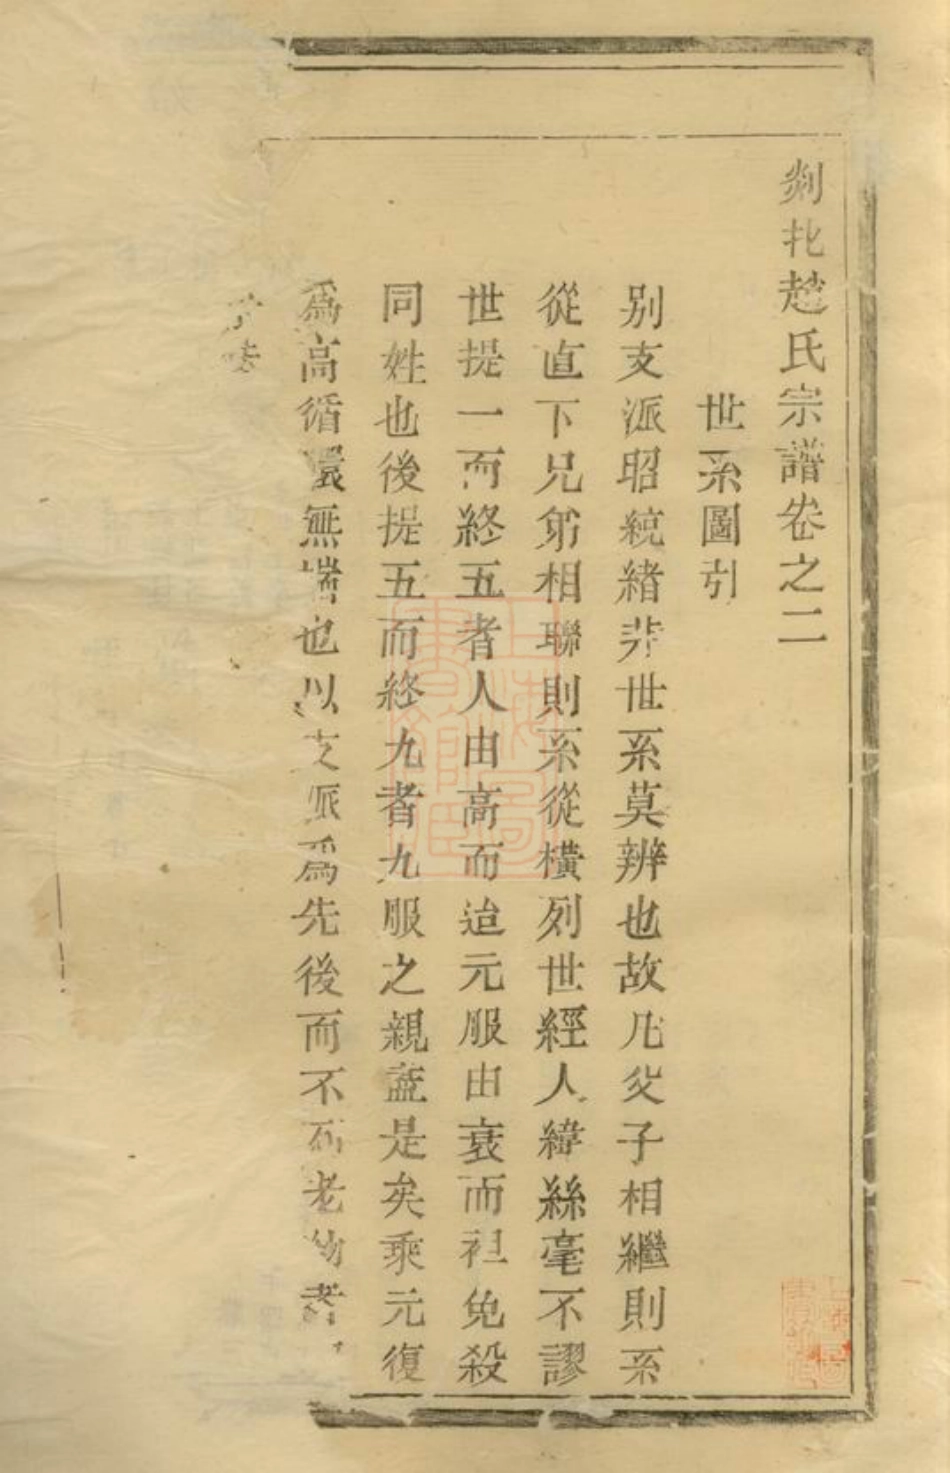 剡北趙氏宗譜卷之二
世系圖引
別支派昭統緒非世系莫辨也故凡父子相繼則系
從直下兄弟相聯則系從橫列世經人緯絲毫不謬
世提一而終五者人由高而迨元服由衰而袒免殺
同姓也後提五而終九者九服之親盡是矣乘元復
為高循環無端也以支派為先後而不石老幼者